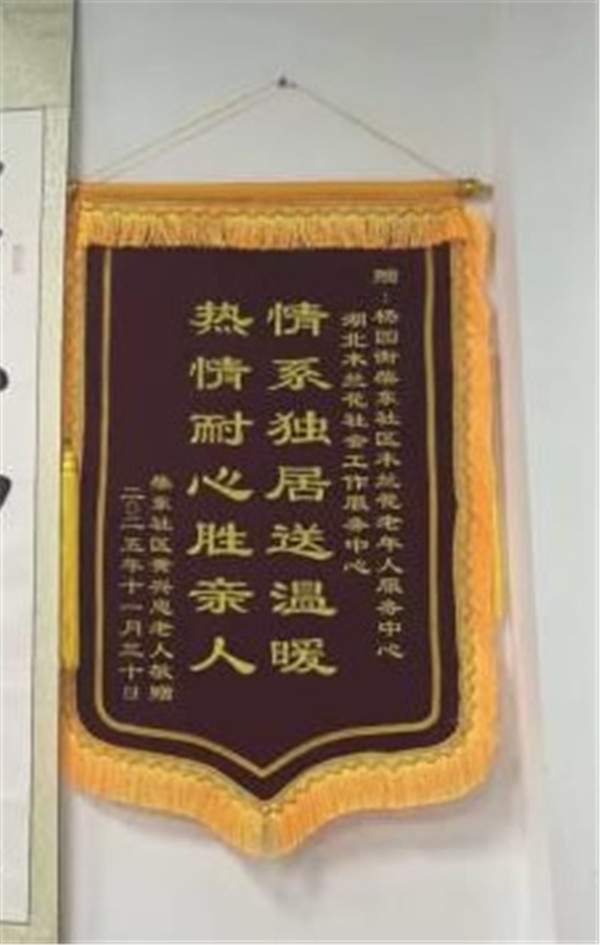 赠：杨园街柴东社区木兰花老年人服务中心
湖北木兰花社会工作服务中心
情系独居送温暖
热情耐心胜亲人
柴东社区黄兴惠老人敬赠
二〇二五年十一月三十日